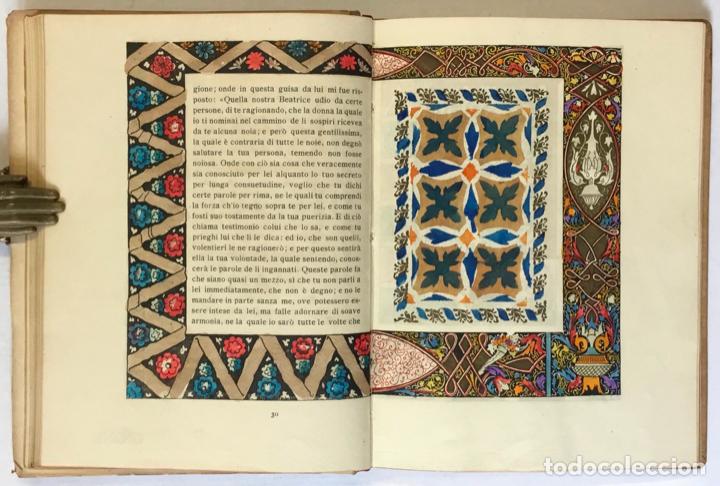 gione; onde in questa guisa da lui mi fue ris-
posto: «Quella nostra Beatrice udio da certe
persone, di te ragionando, che la donna la quale
io ti nominai nel cammino de li sospiri ricevea
da te alcuna noia; e però questa gentilissima,
la quale è contraria di tutte le noie, non degnò
salutare la tua persona, temendo non fosse
noiosa. Onde con ciò sia cosa che veracemente
sia conosciuto per lei alquanto lo tuo secreto
per lunga consuetudine, voglio che tu dichi
certe parole per rima, ne le quali tu comprendi
la forza ch'io tegno sopra te per lei, e come tu
fosti suo tostamente da la tua puerizia. E di ciò
chiama testimonio colui che lo sa, e come tu
prieghi lui che li le dica: ed io, che son quelli,
volentieri le ne ragionerò; e per questo sentirà
ella la tua volontade, la quale sentendo, conos-
cerà le parole de li ingannati. Queste parole fa
che siano quasi un mezzo, sì che tu non parli a
lei immediatamente, che non è degno; e no le
mandare in parte sanza me, ove potessero es-
sere intese da lei, ma falle adornare di soave
armonia, ne la quale io sarò tutte le volte che
30
todocoleccion
todocoleccion.net